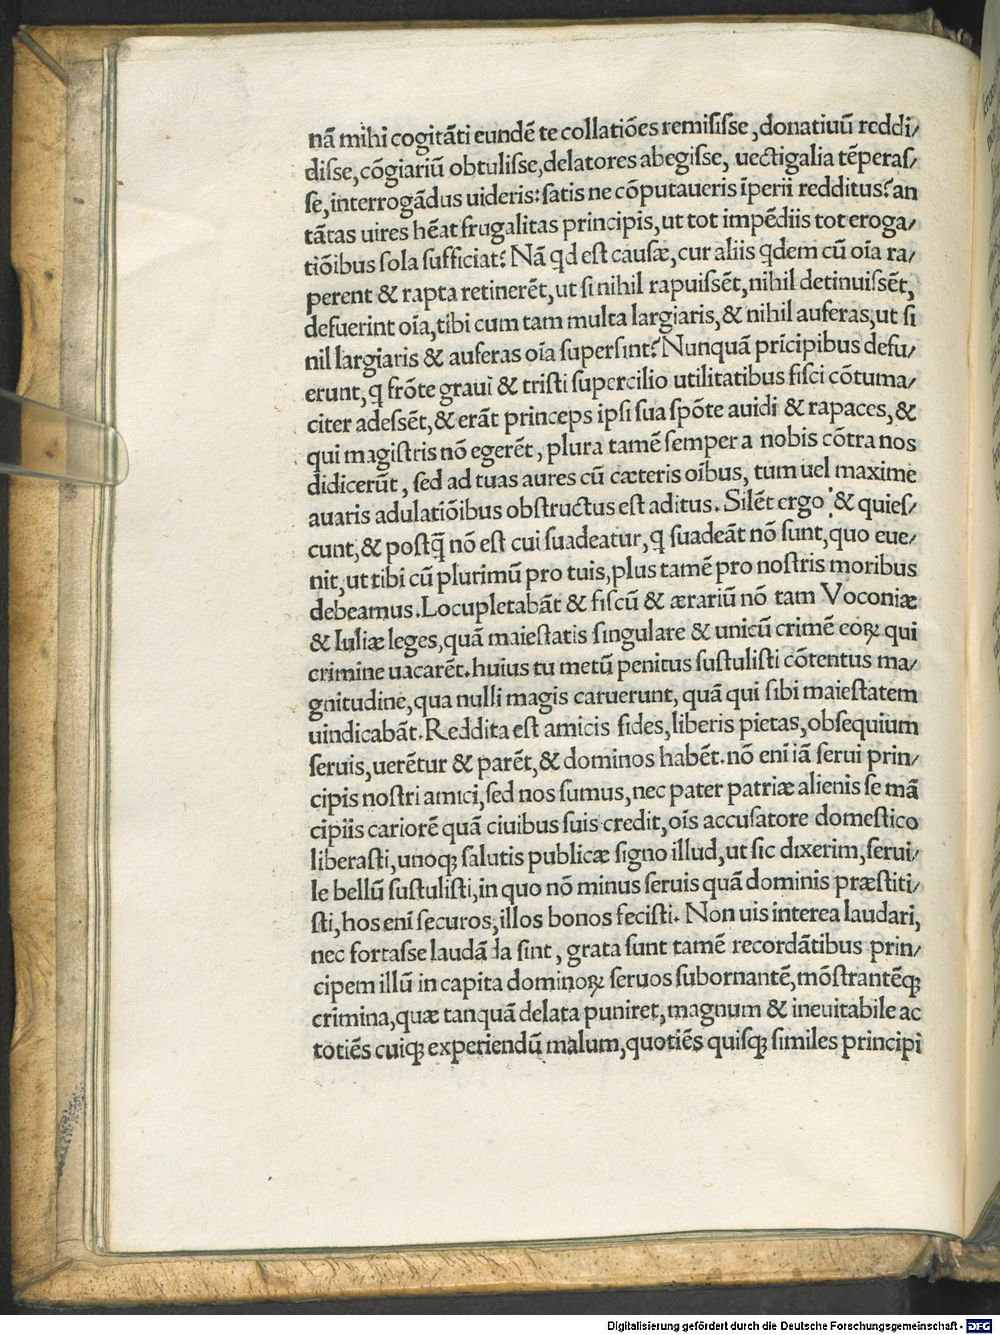 nã mihi cogitãti eundẽ te collatiões remisisse, donatiuũ reddi/
disse, cõgiariũ obtulisse, delatores abegisse, uectigalia tẽperas/
se, interrogãdus uideris: satis ne cõputaueris ĩperii redditus? an
tãtas uires hẽat frugalitas principis, ut tot impẽdiis tot eroga/
tiõibus sola sufficiat? Nã qd est causæ, cur aliis qdem cũ oĩa ra/
perent & rapta retinerẽt, ut si nihil rapuissẽt, nihil detinuissẽt,
defuerint oĩa, tibi cum tam multa largiaris, & nihil auferas, ut si
nil largiaris & auferas oĩa supersint? Nunquã prĩcipibus defu/
erunt, q frõte graui & tristi supercilio utilitatibus fisci cõtuma/
citer adessẽt, & erãt princeps ipsi sua spõte auidi & rapaces, &
qui magistris nõ egerẽt, plura tamẽ semper a nobis cõtra nos
didicerũt, sed ad tuas aures cũ cæteris oĩbus, tum uel maxime
auaris adulatiõibus obstructus est aditus. Silẽt ergo & quies/
cunt, & postq̃ nõ est cui suadeatur, q suadeãt nõ sunt, quo eue/
nit, ut tibi cũ plurimũ pro tuis, plus tamẽ pro nostris moribus
debeamus. Locupletabãt & fiscũ & ærariũ nõ tam Voconiæ
& Iuliæ leges, quã maiestatis singulare & unicũ crimẽ eoꝝ qui
crimine uacarẽt. huius tu metũ penitus sustulisti cõtentus ma/
gnitudine, qua nulli magis caruerunt, quã qui sibi maiestatem
uindicabãt. Reddita est amicis fides, liberis pietas, obsequium
seruis, uerẽtur & parẽt, & dominos habẽt. nõ enĩ iã serui prin/
cipis nostri amici, sed nos sumus, nec pater patriæ alienis se mã
cipiis cariorẽ quã ciuibus suis credit, oĩs accusatore domestico
liberasti, unoqꝫ salutis publicæ signo illud, ut sic dixerim, serui/
le bellũ sustulisti, in quo nõ minus seruis quã dominis præstiti/
sti, hos enĩ securos, illos bonos fecisti. Non uis interea laudari,
nec fortasse laudãda sint, grata sunt tamẽ recordãtibus prin/
cipem illũ in capita dominoꝝ seruos subornantẽ, mõstrantẽqꝫ
crimina, quæ tanquã delata puniret, magnum & ineuitabile ac
totiẽs cuiqꝫ experiendũ malum, quotiẽs quisqꝫ similes principi
Digitalisierung gefördert durch die Deutsche Forschungsgemeinschaft - DFG